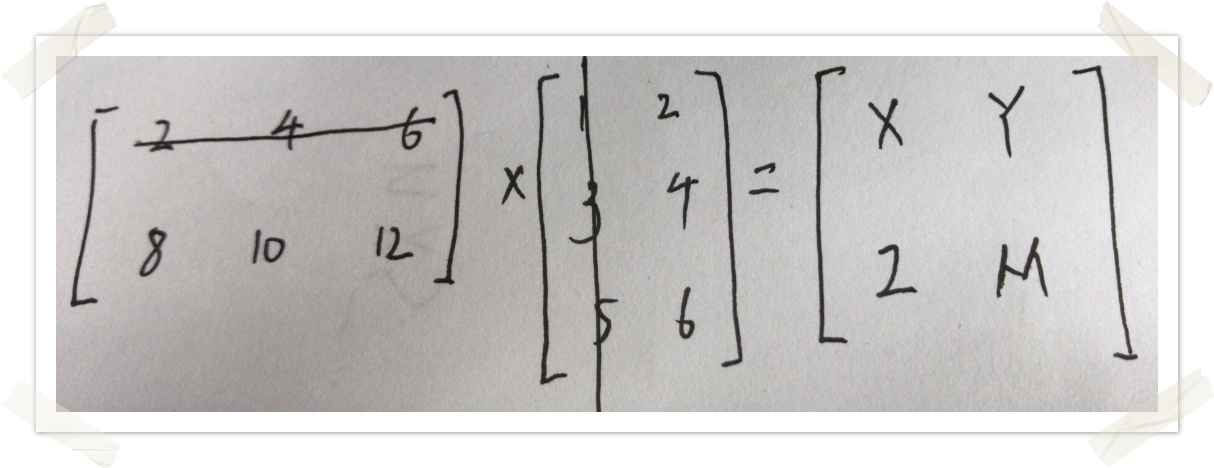 [ 2 4 6
8 10 12 ]
×
[ 1 2
3 4
5 6 ]
=
[ X Y
Z M ]